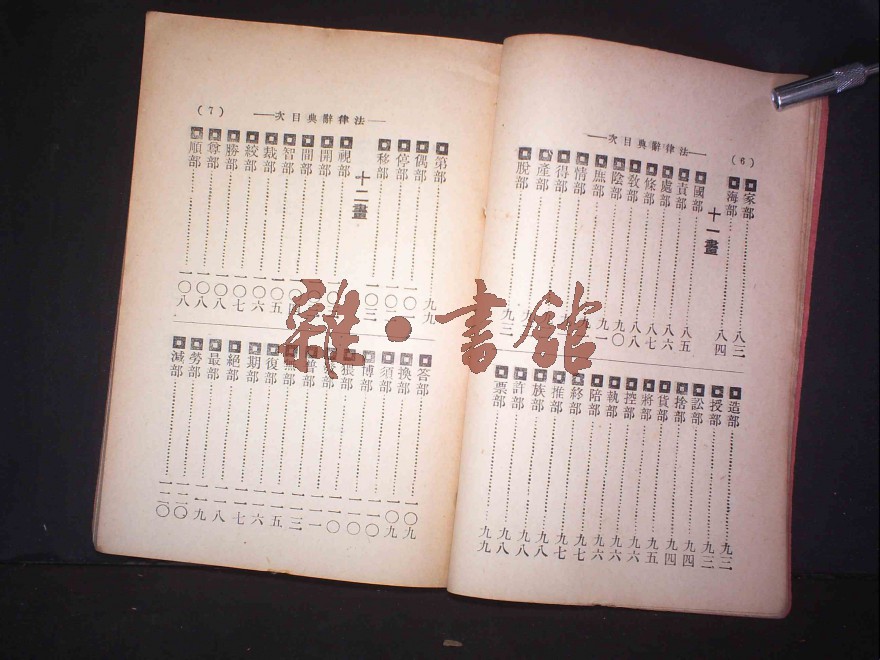 (6)
—法律辭典目次—
家部 八三
海部 八四
十一畫
國部 八五
責部 八六
處部 八七
條部 八八
教部 九〇
陰部 九一
庶部
情部
得部
產部
脫部 九三
造部 九三
授部 九三
訟部 九四
捨部 九四
貨部 九五
將部 九六
控部 九六
執部 九六
陪部 九七
終部 九七
推部 九八
族部 九八
許部 九八
票部 九九
—法律辭典目次—
(7)
第部 九九
偶部 一〇一
停部 一〇二
移部 一〇三
十二畫
視部
開部
間部
智部 一〇五
裁部 一〇六
絞部 一〇七
勝部 一〇八
尊部 一〇八
順部 一〇八
答部 一〇九
換部 一〇九
須部 一一〇
博部 一一〇
部 一一一
普部 一一三
無部 一一五
復部 一一六
期部 一一七
絕部 一一八
最部 一一九
勞部 一二〇
減部 一二〇
雜·書館